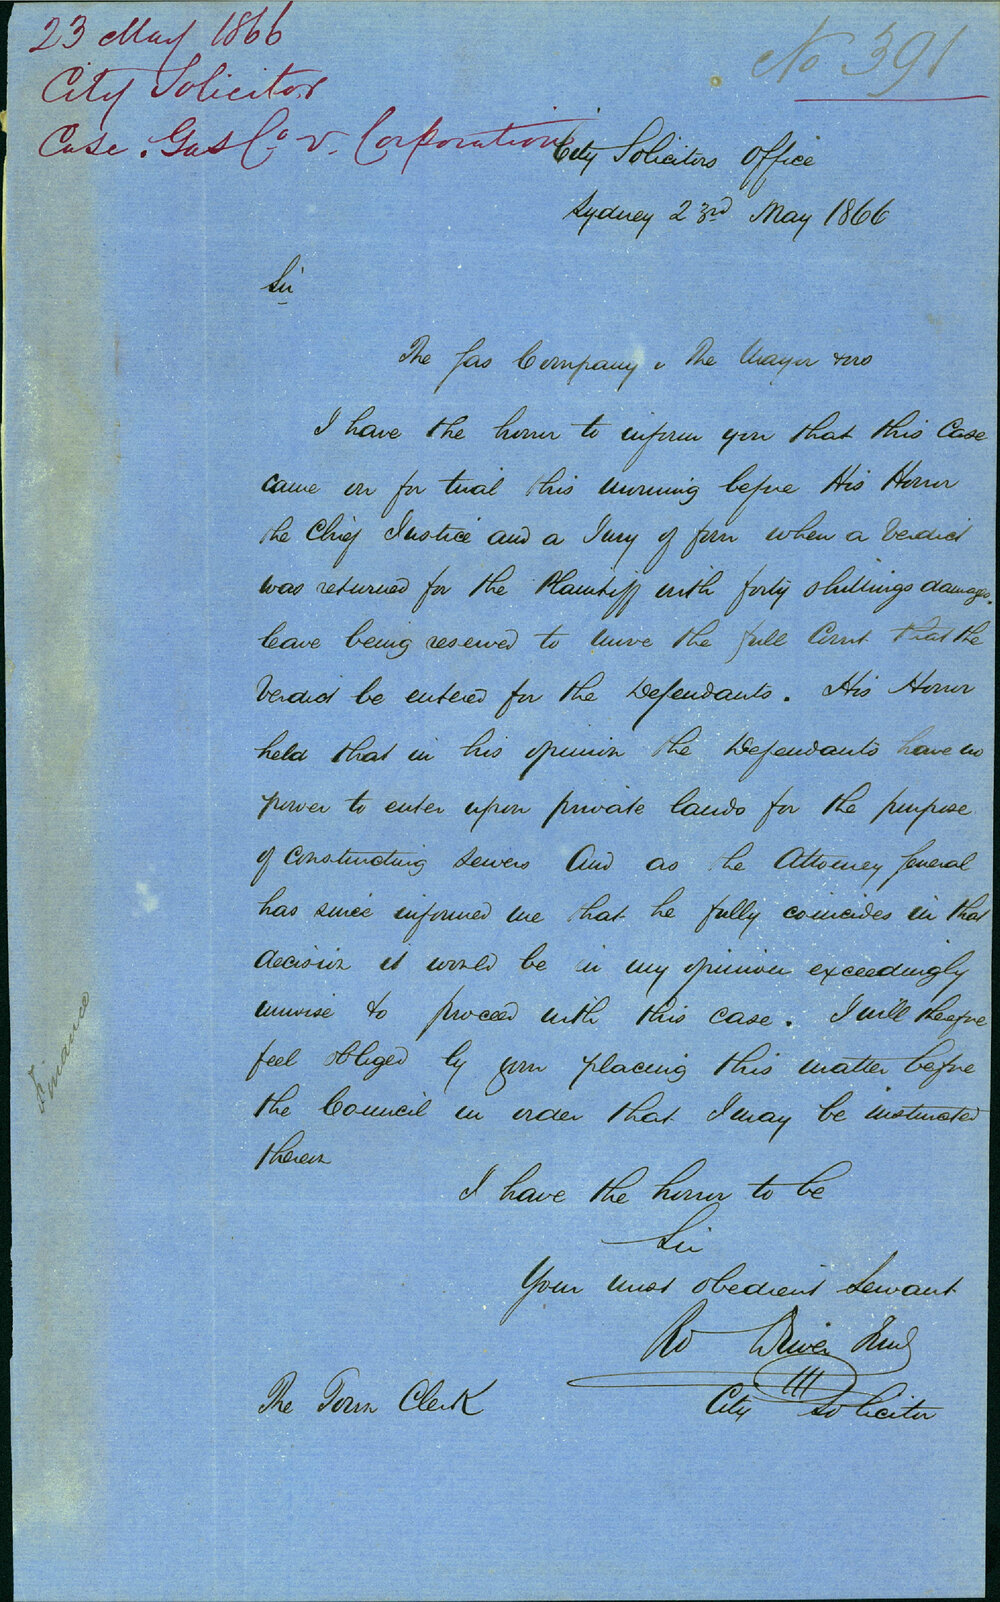 23 May 1866
City Solicitor
Case. Gas Co v. Corporation
No 391
City Solicitors Office
Sydney 23rd May 1866
Sir
The Gas Company v The Mayor &ors
I have the honor to inform you that this Case
came on for trial this morning before His Honor
the Chief Justice and a Jury of four when a Verdict
was returned for the Plaintiff with forty shillings damages.
leave being reserved to move the full Court that the
Verdict be entered for the Defendants. His Honor
held that in his opinion the Defendants have no
power to enter upon private lands for the purpose
of constructing sewers And as the Attorney General
has since informed me that he fully coincides in that
decision it would be in my opinion exceedingly
unwise to proceed with this case. I will therefore
feel obliged by your placing this matter before
the Council in order that I may be instructed
therein
I have the honor to be
Sir
Your most obedient Servant
Rd Driver Junr
City Solicitor
The Town Clerk
Finance